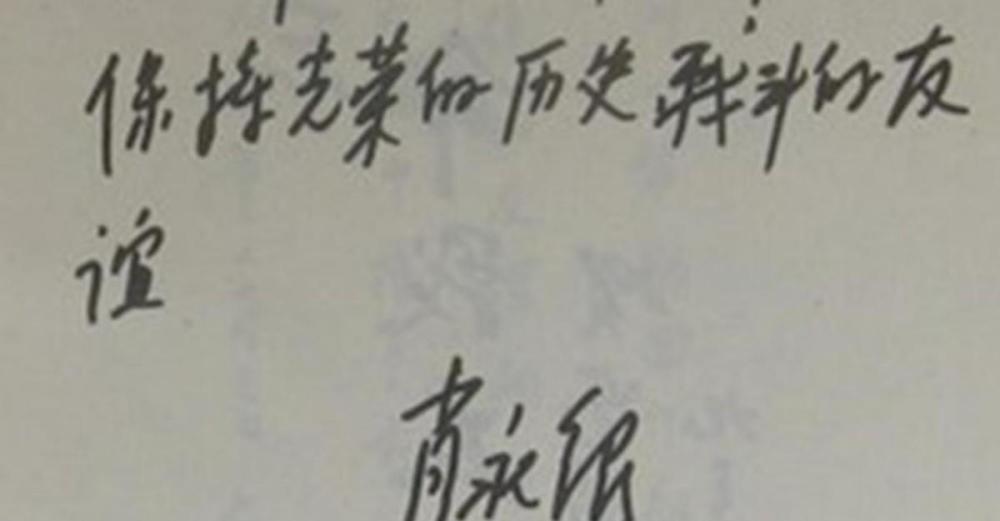 保持光荣的历史战斗的友
谊
肖永银